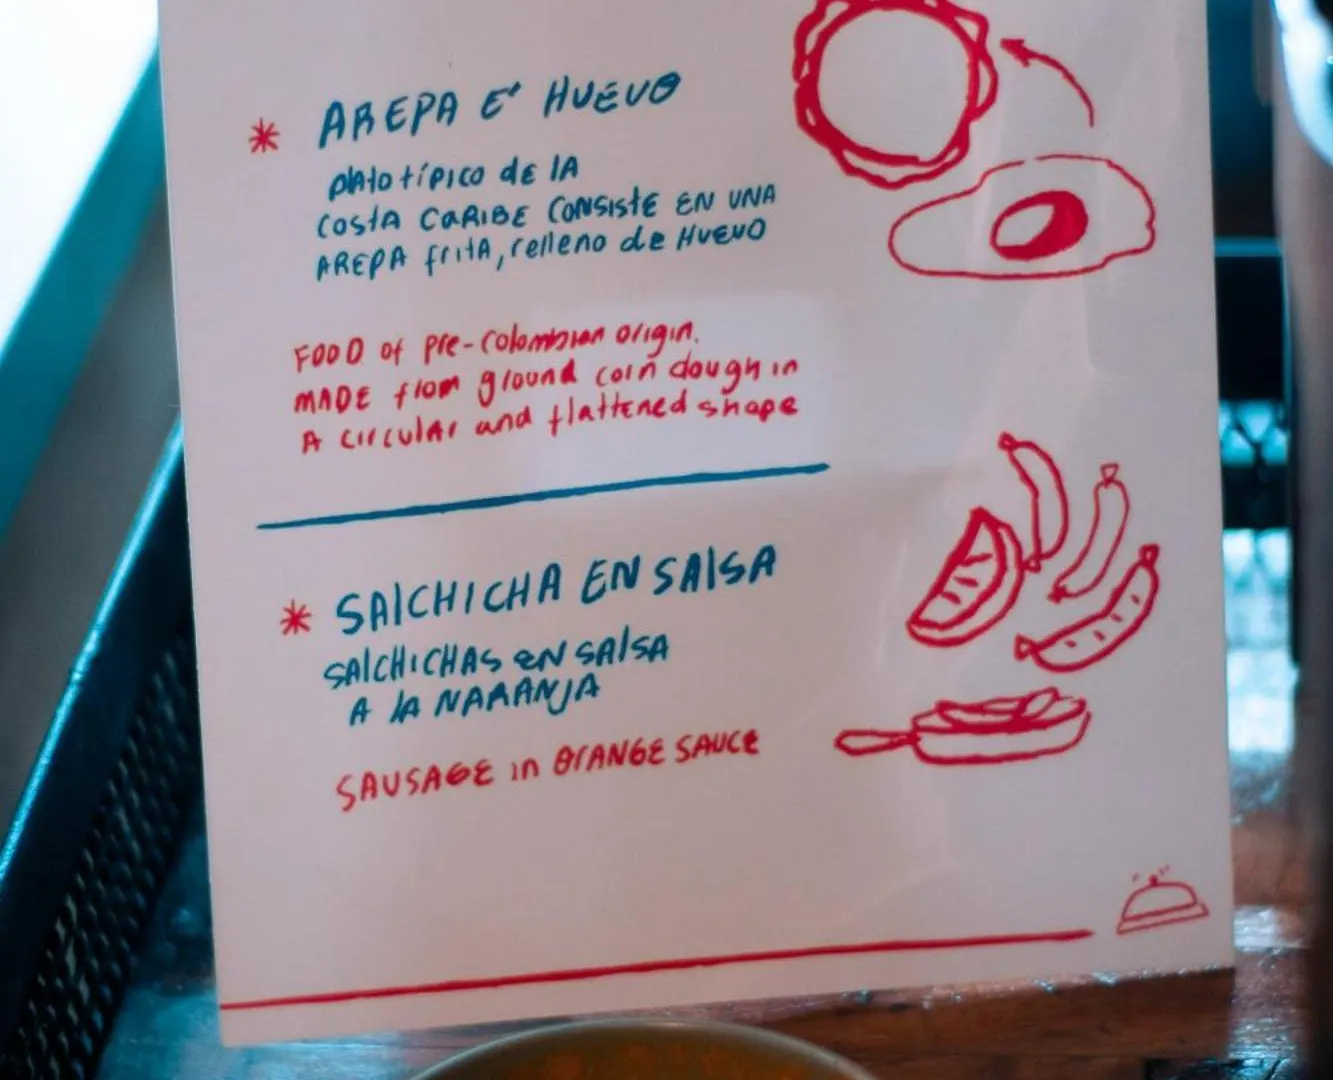 * AREPA E' HUEVO
plato típico de lA
COStA CARIBE CONSIStE EN UNA
AREPA fritA, relleno de HUEVO
FOOD of pre-colombian origin.
MADE from ground corn dough in
A circular and flattened shape
* SAlCHICHA EN SAlSA
SAlCHICHAS EN SAlSA
A lA NARANJA
SAUSAGE in OrANGE SAUCE